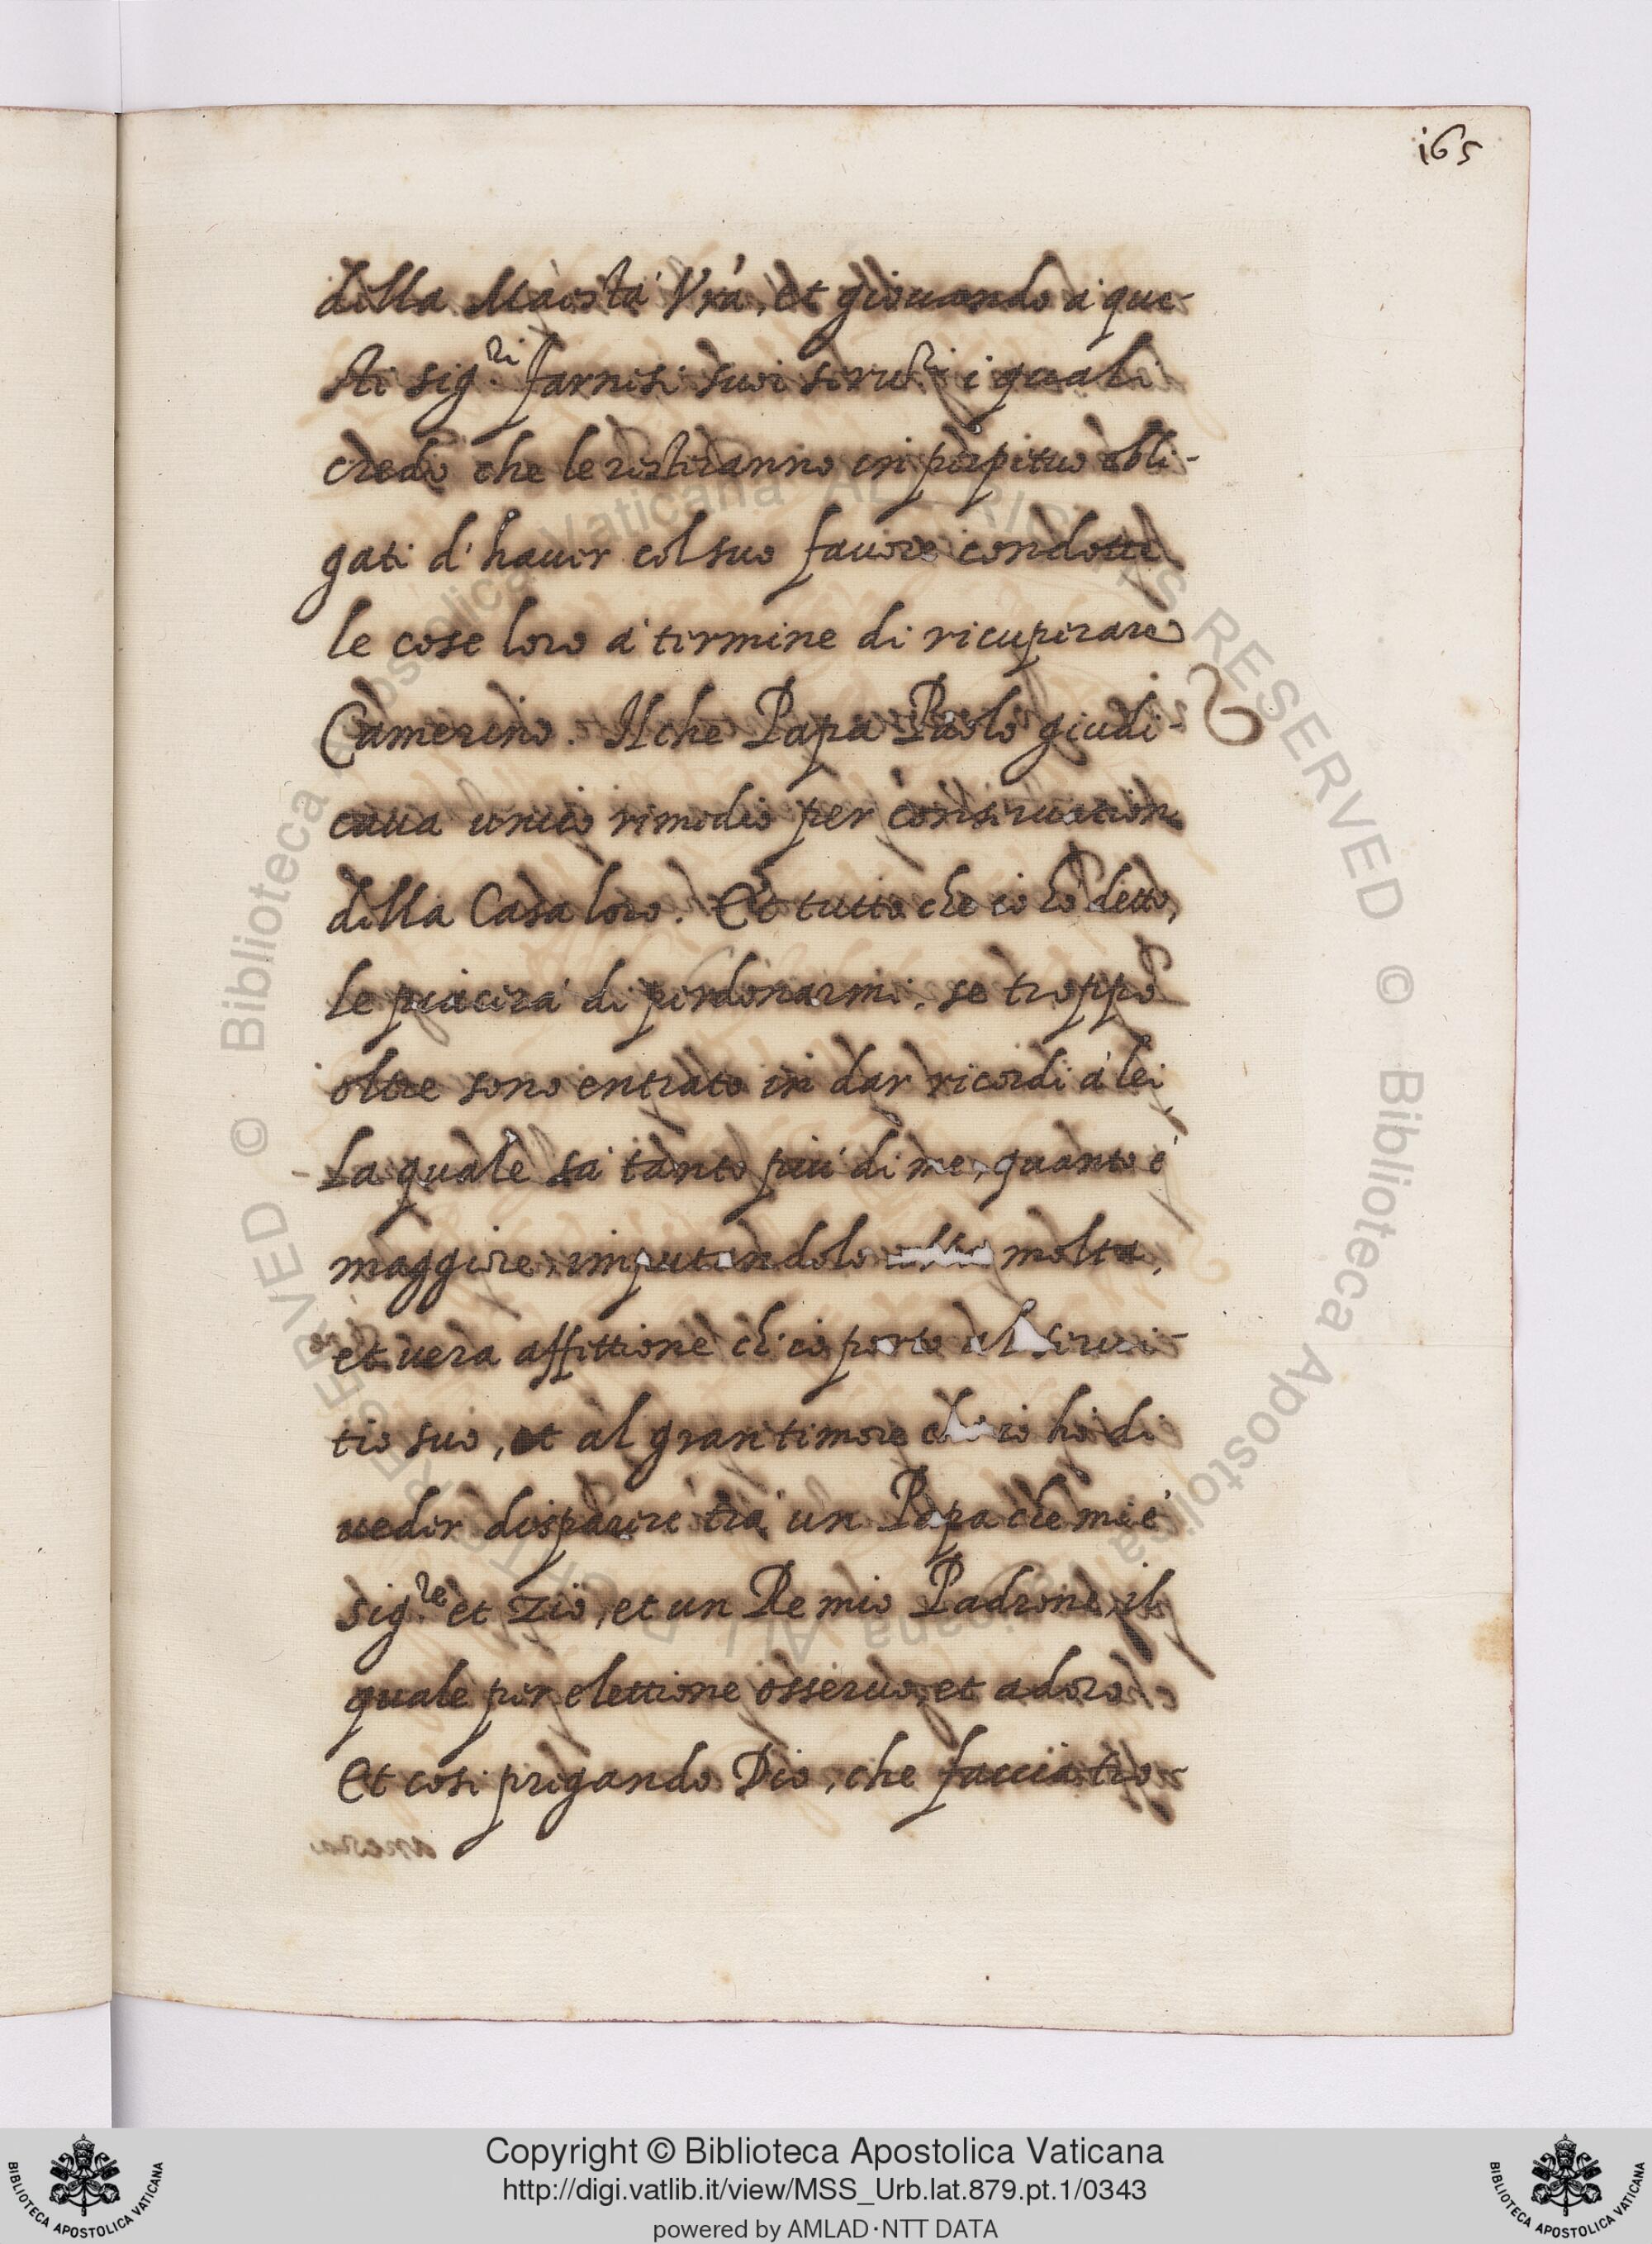 165
della Maestà Vrà, et giouando à que-
sti sig.ri farnesi suoi seru.ri i quali
credo che le resteranno in perpetuo obli-
gati d'hauer col suo fauore condotte
le cose loro à termine di ricuperare
Camerino. Il che Papa Paolo giudi-
caua unico rimedio per conseruatione
della Casa loro. Et tutto che io hò detto,
le piacerà di perdonarmi, se troppo
oltre sono entrato in dar ricordi à lei
La quale sà tanto più di me, quanto è
maggiore, imputandolo alla molta,
et uera affettione ch'io porto al serui-
tio suo, et al gran timore che io hò di
ueder disparere trà un Papa che mi è
sig.re et zio, et un Re mio Padrone, il
quale per elettione osseruo, et adoro
Et cosi pregando Dio, che faccia tro-
© Biblioteca Apostolica Vaticana ALL RIGHTS RESERVED © Biblioteca Apostolica Vaticana ALL RIGHTS RESERVED
BIBLIOTECA APOSTOLICA VATICANA
Copyright © Biblioteca Apostolica Vaticana
http://digi.vatlib.it/view/MSS_Urb.lat.879.pt.1/0343
powered by AMLAD·NTT DATA
BIBLIOTECA APOSTOLICA VATICANA